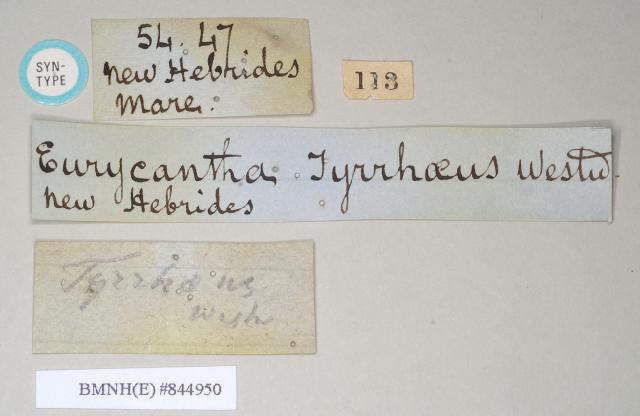 SYN-
TYPE
54. 47
new Hebrides
Mare.
113
Eurycantha. Tyrrhæus Westw.
new Hebrides
Tyrrhæus
Westw
BMNH(E) #844950